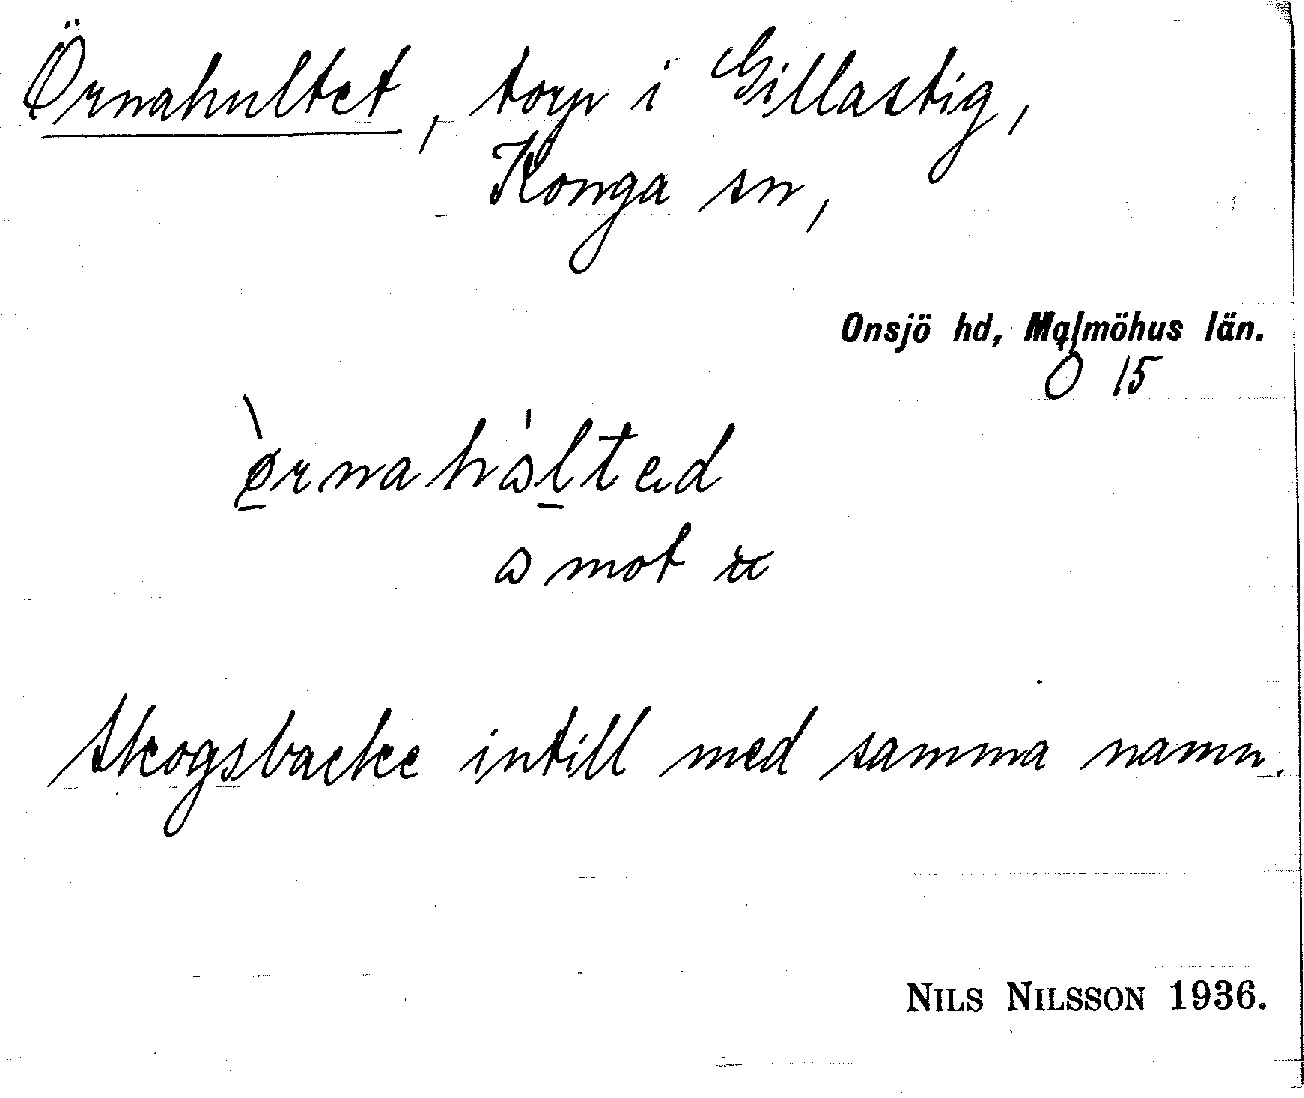 Örnahultet, torp i Gillastig,
Konga sn,
Onsjö hd, Malmöhus län.
O 15
ø̀rnaha̍lted
a mot
Skogsbacke intill med samma namn.
NILS NILSSON 1936.